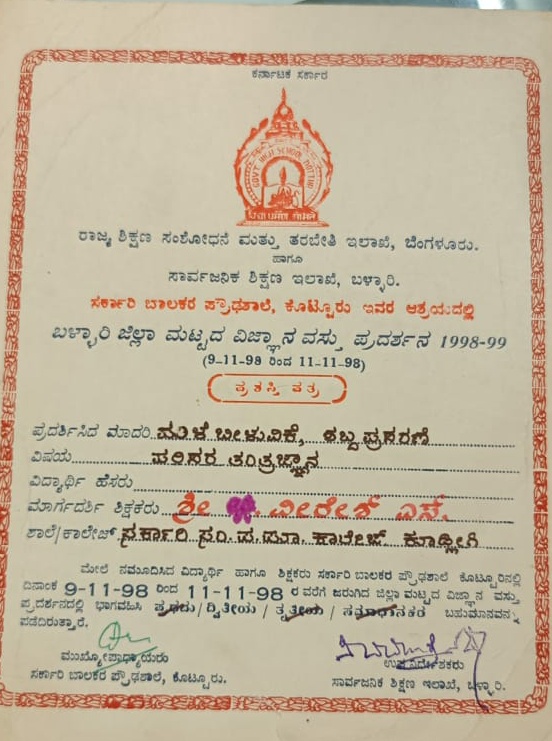 ಕರ್ನಾಟಕ ಸರ್ಕಾರ
GOVT HIGH SCHOOL
ರಾಜ್ಯ ಶಿಕ್ಷಣ ಸಂಶೋಧನೆ ಮತ್ತು ತರಬೇತಿ ಇಲಾಖೆ, ಬೆಂಗಳೂರು.
ಹಾಗೂ
ಸಾರ್ವಜನಿಕ ಶಿಕ್ಷಣ ಇಲಾಖೆ, ಬಳ್ಳಾರಿ.
ಸರ್ಕಾರಿ ಬಾಲಕರ ಪ್ರೌಢಶಾಲೆ, ಕೊಟ್ಟೂರು ಇವರ ಆಶ್ರಯದಲ್ಲಿ
ಬಳ್ಳಾರಿ ಜಿಲ್ಲಾ ಮಟ್ಟದ ವಿಜ್ಞಾನ ವಸ್ತು ಪ್ರದರ್ಶನ 1998-99
(9-11-98 ರಿಂದ 11-11-98)
ಪ್ರಶಸ್ತಿ ಪತ್ರ
ಪ್ರದರ್ಶಿಸಿದ ಮಾದರಿ ಮಳೆ ಬೀಳುವಿಕೆ, ಶಬ್ದ ಪ್ರಸರಣ
ವಿಷಯ ಪರಿಸರ ತಂತ್ರಜ್ಞಾನ
ವಿದ್ಯಾರ್ಥಿ ಹೆಸರು
ಮಾರ್ಗದರ್ಶಿ ಶಿಕ್ಷಕರು ಶ್ರೀ ವೀರೇಶ್ ಎಸ್.
ಶಾಲೆ/ಕಾಲೇಜ್ ಸರ್ಕಾರಿ ಸಂ.ಪ.ಪೂ. ಕಾಲೇಜ್ ಕೂಡ್ಲಿಗಿ
ಮೇಲೆ ನಮೂದಿಸಿದ ವಿದ್ಯಾರ್ಥಿ ಹಾಗೂ ಶಿಕ್ಷಕರು ಸರ್ಕಾರಿ ಬಾಲಕರ ಪ್ರೌಢಶಾಲೆ ಕೊಟ್ಟೂರಿನಲ್ಲಿ
ದಿನಾಂಕ 9-11-98 ರಿಂದ 11-11-98 ರ ವರೆಗೆ ಜರುಗಿದ ಜಿಲ್ಲಾ ಮಟ್ಟದ ವಿಜ್ಞಾನ ವಸ್ತು
ಪ್ರದರ್ಶನದಲ್ಲಿ ಭಾಗವಹಿಸಿ ಪ್ರಥಮ / ದ್ವಿತೀಯ / ತೃತೀಯ / ಸಮಾಧಾನಕರ ಬಹುಮಾನವನ್ನು
ಪಡೆದಿರುತ್ತಾರೆ.
ಮುಖ್ಯೋಪಾಧ್ಯಾಯರು
ಸರ್ಕಾರಿ ಬಾಲಕರ ಪ್ರೌಢಶಾಲೆ, ಕೊಟ್ಟೂರು.
ಉಪನಿರ್ದೇಶಕರು
ಸಾರ್ವಜನಿಕ ಶಿಕ್ಷಣ ಇಲಾಖೆ, ಬಳ್ಳಾರಿ.